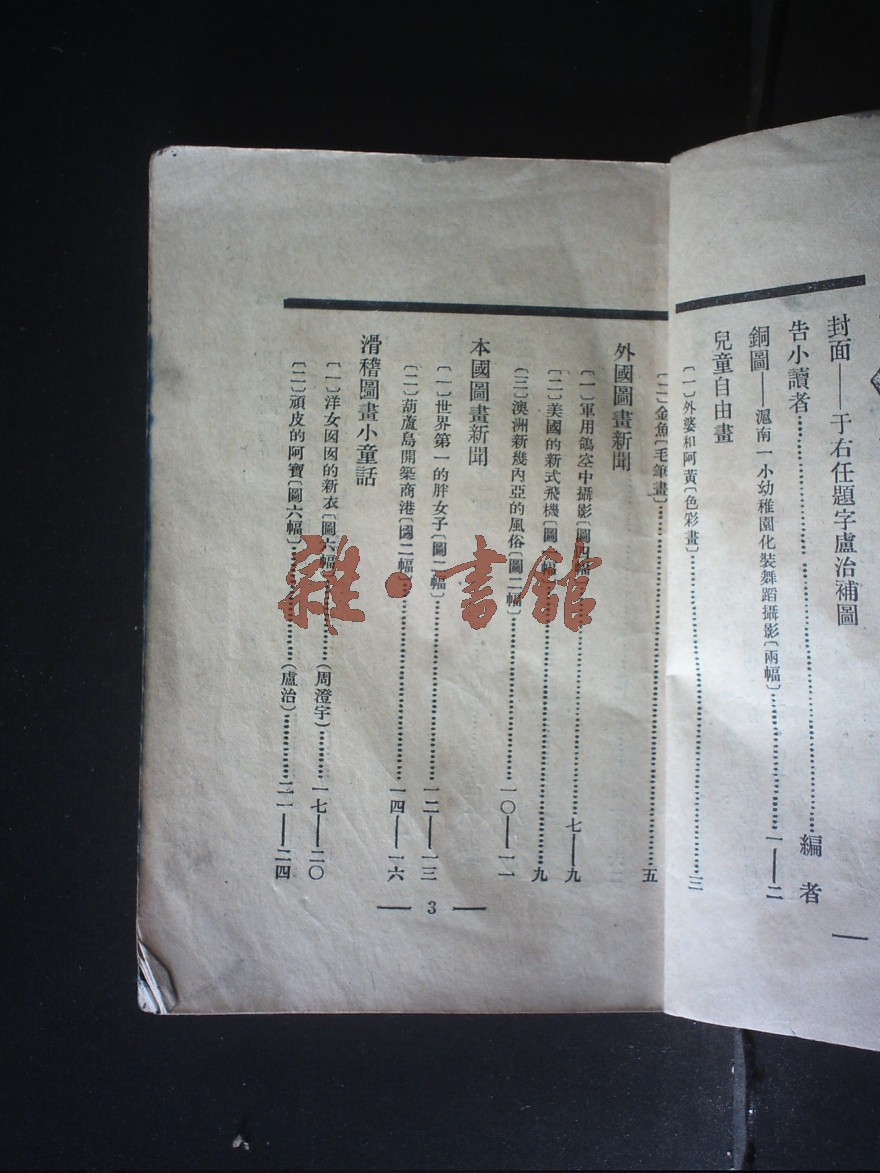 封面——于右任題字盧治補圖
告小讀者……編者
銅圖——滬南一小幼稚園化裝舞蹈攝影〔兩幅〕……一——二
兒童自由畫
〔一〕外婆和阿黃〔色彩畫〕……三
〔二〕金魚〔毛筆畫〕……五
外國圖畫新聞
〔一〕軍用鴿空中攝影〔圖四幅〕……七——九
〔二〕美國的新式飛機〔圖幅〕……九
〔三〕澳洲新幾內亞的風俗〔圖二幅〕……一〇——一一
本國圖畫新聞
〔一〕世界第一的胖女子〔圖二幅〕……一二——一三
〔二〕葫蘆島開築商港〔圖二幅〕……一四——一六
滑稽圖畫小童話
〔一〕洋女囡囡的新衣〔圖六幅〕……(周澄宇)……一七——二〇
〔二〕頑皮的阿寶〔圖六幅〕……(盧治)……二一——二四
— 3 —
雜·書館